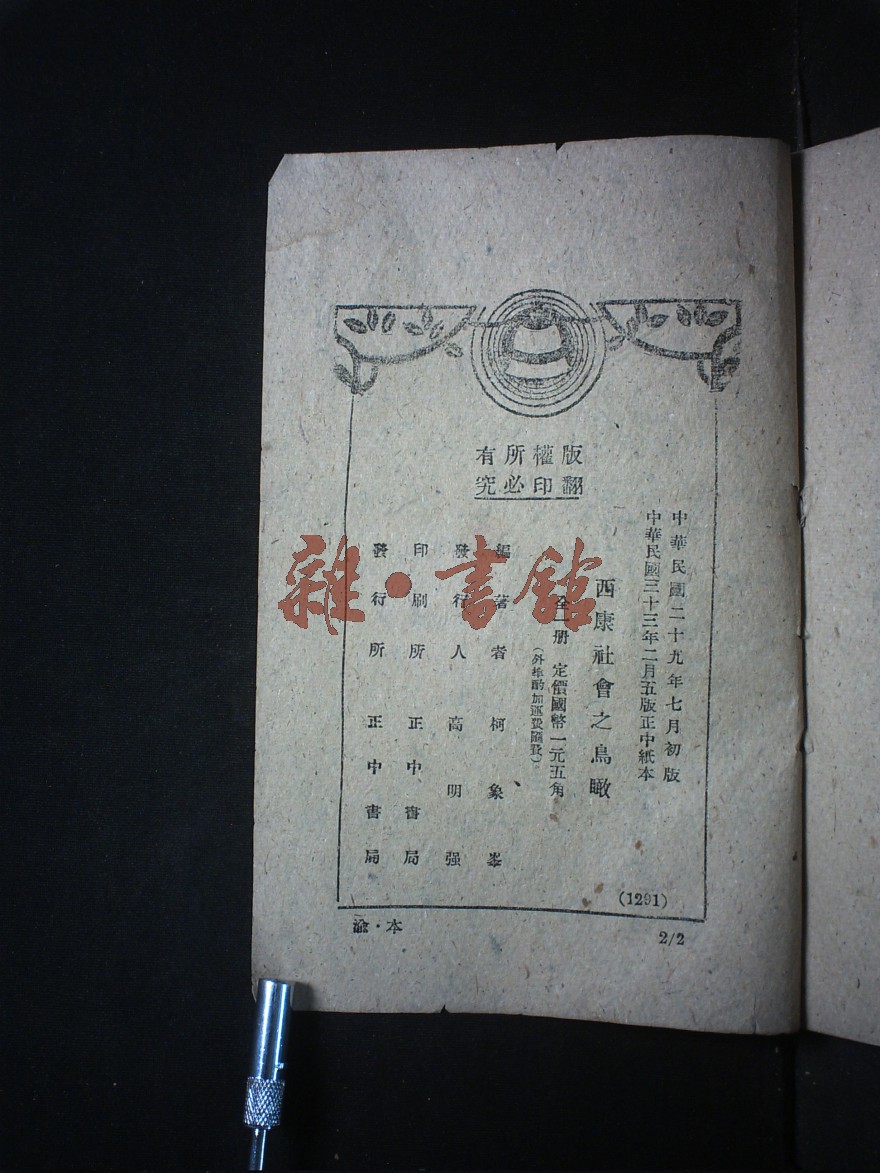 版權所有
翻印必究
中華民國二十九年七月初版
中華民國三十三年二月五版正中紙本
西康社會之鳥瞰
全一册 定價國幣一元五角
(外埠酌加運費匯費)
編著者 柯象峯
發行人 高明强
印刷所 正中書局
發行所 正中書局
(1291)
渝·本
2/2
雜·書館